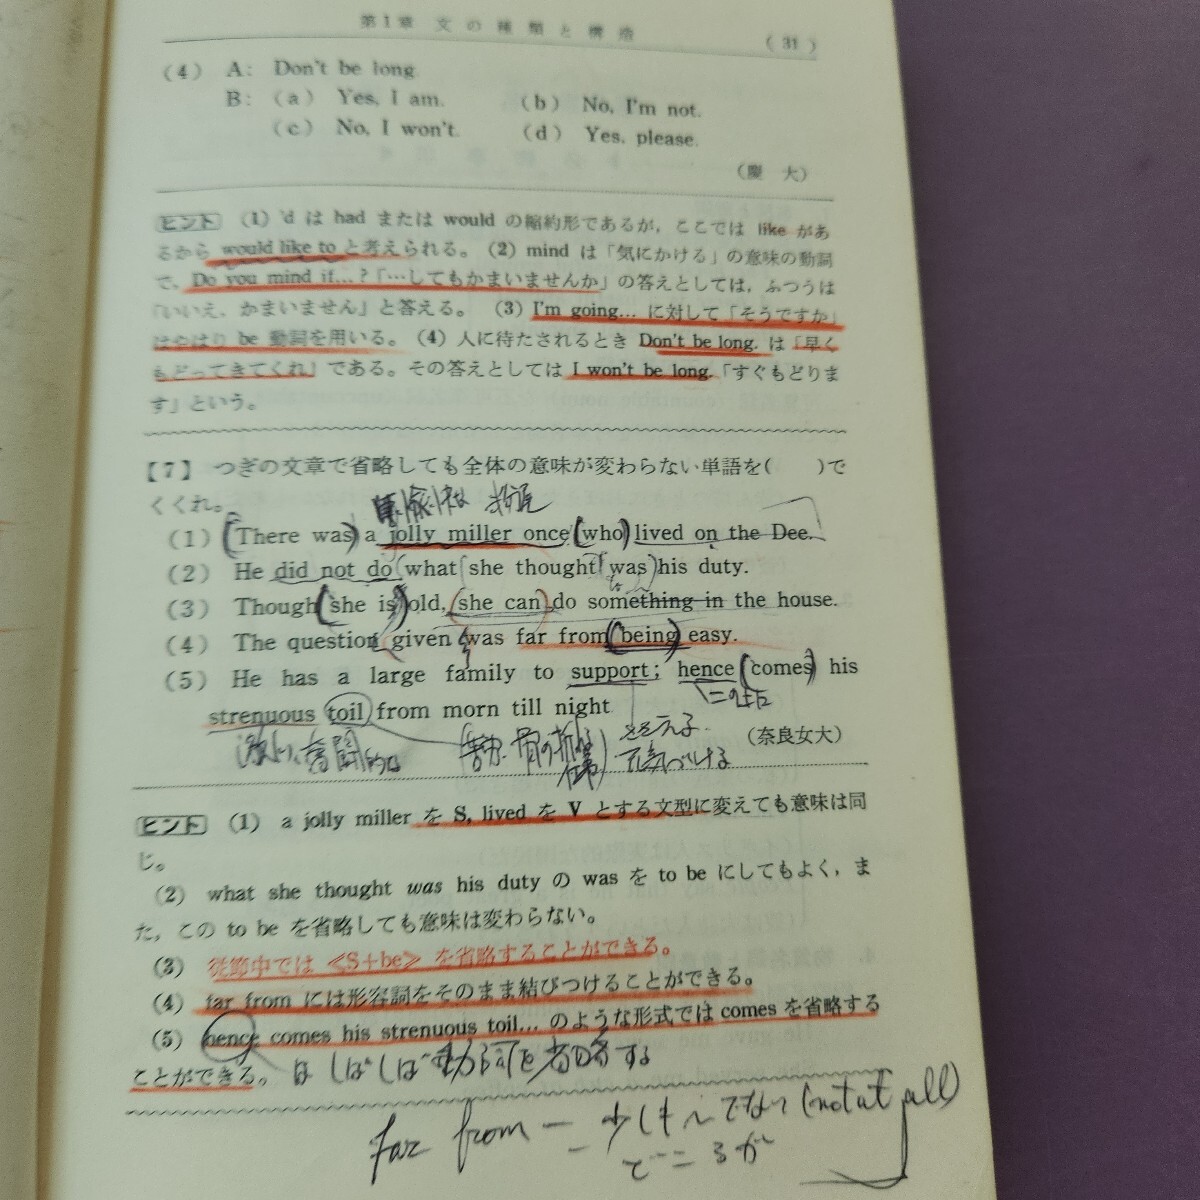 第1章 文の種類と構造 (31)
(4) A: Don't be long.
B: (a) Yes, I am. (b) No, I'm not.
(c) No, I won't. (d) Yes, please.
(慶 大)
ヒント (1) 'd は had または would の縮約形であるが，ここでは like があ
るから would like to と考えられる。(2) mind は「気にかける」の意味の動詞
で，Do you mind if…?「…してもかまいませんか」の答えとしては，ふつうは
「いいえ，かまいません」と答える。 (3) I'm going… に対して「そうですか」
はやはり be 動詞を用いる。(4) 人に待たされるとき Don't be long. は「早く
もどってきてくれ」である。その答えとしては I won't be long.「すぐもどりま
す」という。
【7】 つぎの文章で省略しても全体の意味が変わらない単語を( )で
くくれ。
愉快な
(1) (There was) a jolly miller once (who) lived on the Dee.
(2) He did not do (what she thought was) his duty.
(3) Though (she is) old, (she can) do something in the house.
(4) The question given was far from (being) easy.
(5) He has a large family to support; hence (comes) his
strenuous toil from morn till night.
支える
元気づける
(奈良女大)
ヒント (1) a jolly miller を S, lived を V とする文型に変えても意味は同
じ。
(2) what she thought was his duty の was を to be にしてもよく，ま
た，この to be を省略しても意味は変わらない。
(3) 従節中では ≪S+be≫ を省略することができる。
(4) far from には形容詞をそのまま結びつけることができる。
(5) hence comes his strenuous toil… のような形式では comes を省略する
ことができる。 はしばしば動詞を省略する
far from = 少しも〜でない (not at all)
どころか